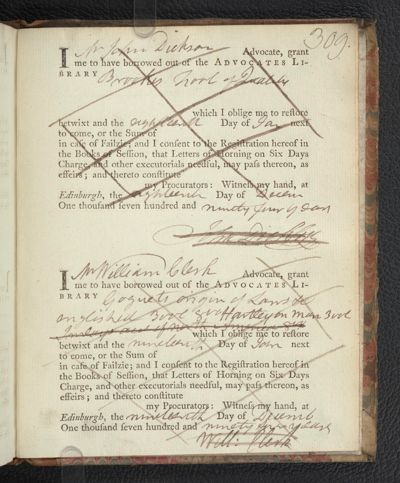 309.
I Mr John Dickson Advocate, grant
me to have borrowed out of the ADVOCATES LI-
BRARY Brookes Fool of Quality
which I oblige me to restore
betwixt and the eighteenth Day of Jan next
to come, or the Sum of
in case of Failzie; and I consent to the Registration hereof in
the Books of Session, that Letters of Horning on Six Days
Charge, and other executorials needful, may pass thereon, as
effeirs; and thereto constitute
my Procurators: Witness my hand, at
Edinburgh, the eighteenth Day of Decem
One thousand seven hundred and ninety four years
John Dickson
I Mr William Clerk Advocate, grant
me to have borrowed out of the ADVOCATES LI-
BRARY Goguets origin of Laws &c
englished 3vol 8vo Hartley on man 3vol
which I oblige me to restore
betwixt and the nineteenth Day of Jan next
to come, or the Sum of
in case of Failzie; and I consent to the Registration hereof in
the Books of Session, that Letters of Horning on Six Days
Charge, and other executorials needful, may pass thereon, as
effeirs; and thereto constitute
my Procurators: Witness my hand, at
Edinburgh, the nineteenth Day of Decemb
One thousand seven hundred and ninety four years
Will: Clerk